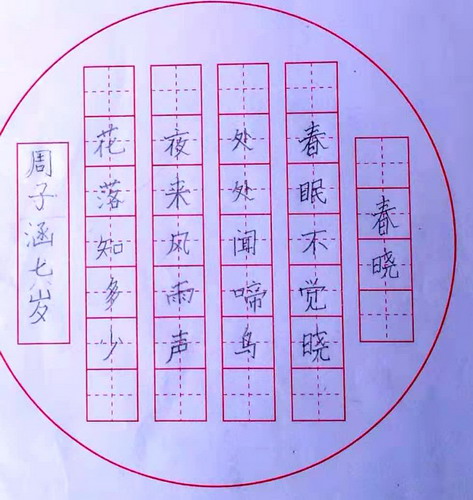 春晓
春眠不觉晓
处处闻啼鸟
夜来风雨声
花落知多少
周子涵七岁